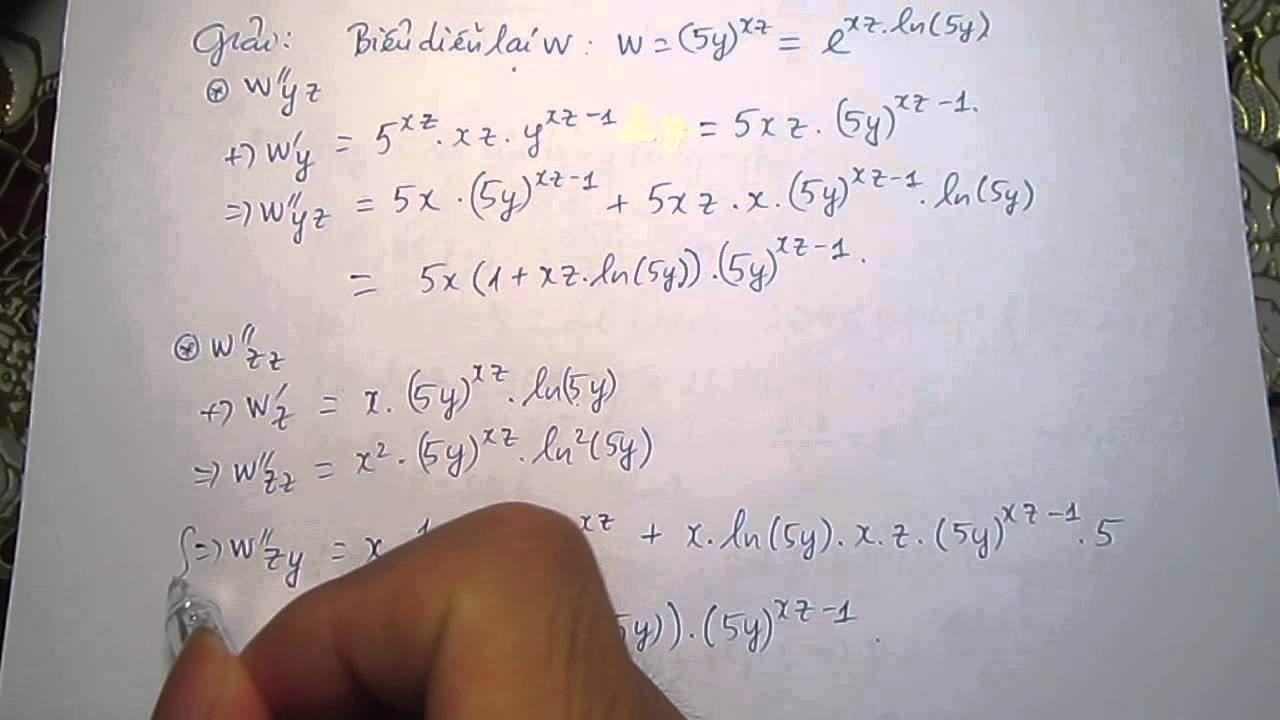 Giải: Biểu diễn lại w: w = (5y)^{xz} = e^{xz.ln(5y)}
⊛ w''_{yz}
+) w'_y = 5^{xz}.xz.y^{xz-1} = 5xz.(5y)^{xz-1}.
=) w''_{yz} = 5x.(5y)^{xz-1} + 5xz.x.(5y)^{xz-1}.ln(5y)
= 5x(1+xz.ln(5y)).(5y)^{xz-1}.
⊛ w''_{zz}
+) w'_z = x.(5y)^{xz}.ln(5y)
=) w''_{zz} = x^2.(5y)^{xz}.ln^2(5y)
=) w''_{zy} = x. xz + x.ln(5y).x.z.(5y)^{xz-1}.5
y)).(5y)^{xz-1}.